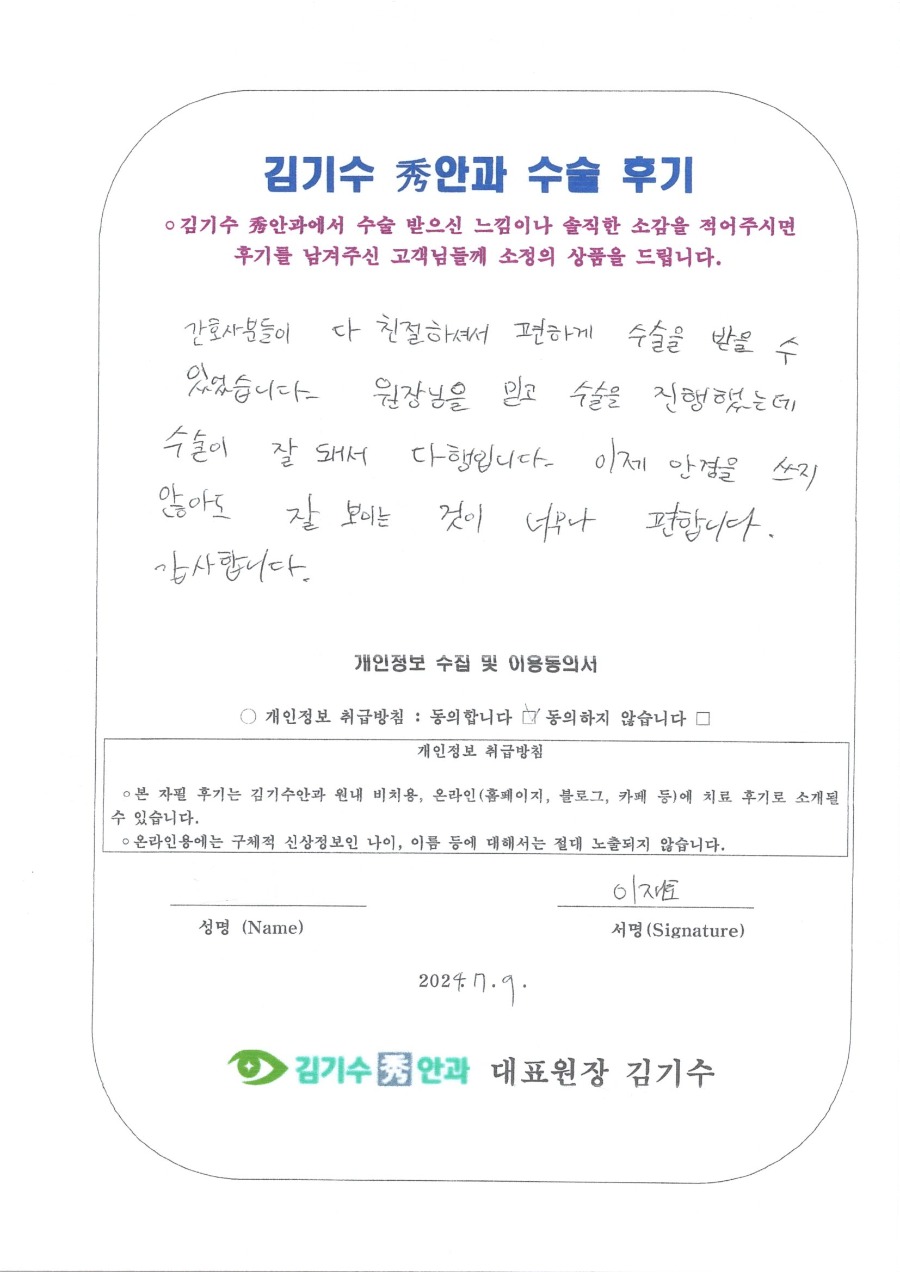 김기수 秀안과 수술 후기
○김기수 秀안과에서 수술 받으신 느낌이나 솔직한 소감을 적어주시면
후기를 남겨주신 고객님들께 소정의 상품을 드립니다.
간호사분들이 다 친절하셔서 편하게 수술을 받을 수
있었습니다. 원장님을 믿고 수술을 진행했는데
수술이 잘 돼서 다행입니다. 이제 안경을 쓰지
않아도 잘 보이는 것이 너무나 편합니다.
감사합니다.
개인정보 수집 및 이용동의서
○ 개인정보 취급방침 : 동의합니다 ☑ 동의하지 않습니다 □
개인정보 취급방침
○본 자필 후기는 김기수안과 원내 비치용, 온라인(홈페이지, 블로그, 카페 등)에 치료 후기로 소개될
수 있습니다.
○온라인용에는 구체적 신상정보인 나이, 이름 등에 대해서는 절대 노출되지 않습니다.
이재표
성명 (Name) 서명(Signature)
2024.7.9.
김기수 秀 안과 대표원장 김기수